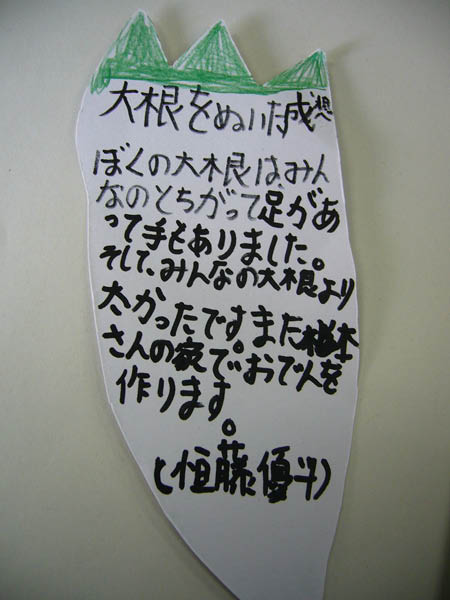 大根をぬいた感想
ぼくの大根は、みん
なのとちがって足があ
って手もありました。
そして、みんなの大根より
太かったです。また
さんの家でおでんを
作ります
。
(恒藤優斗)